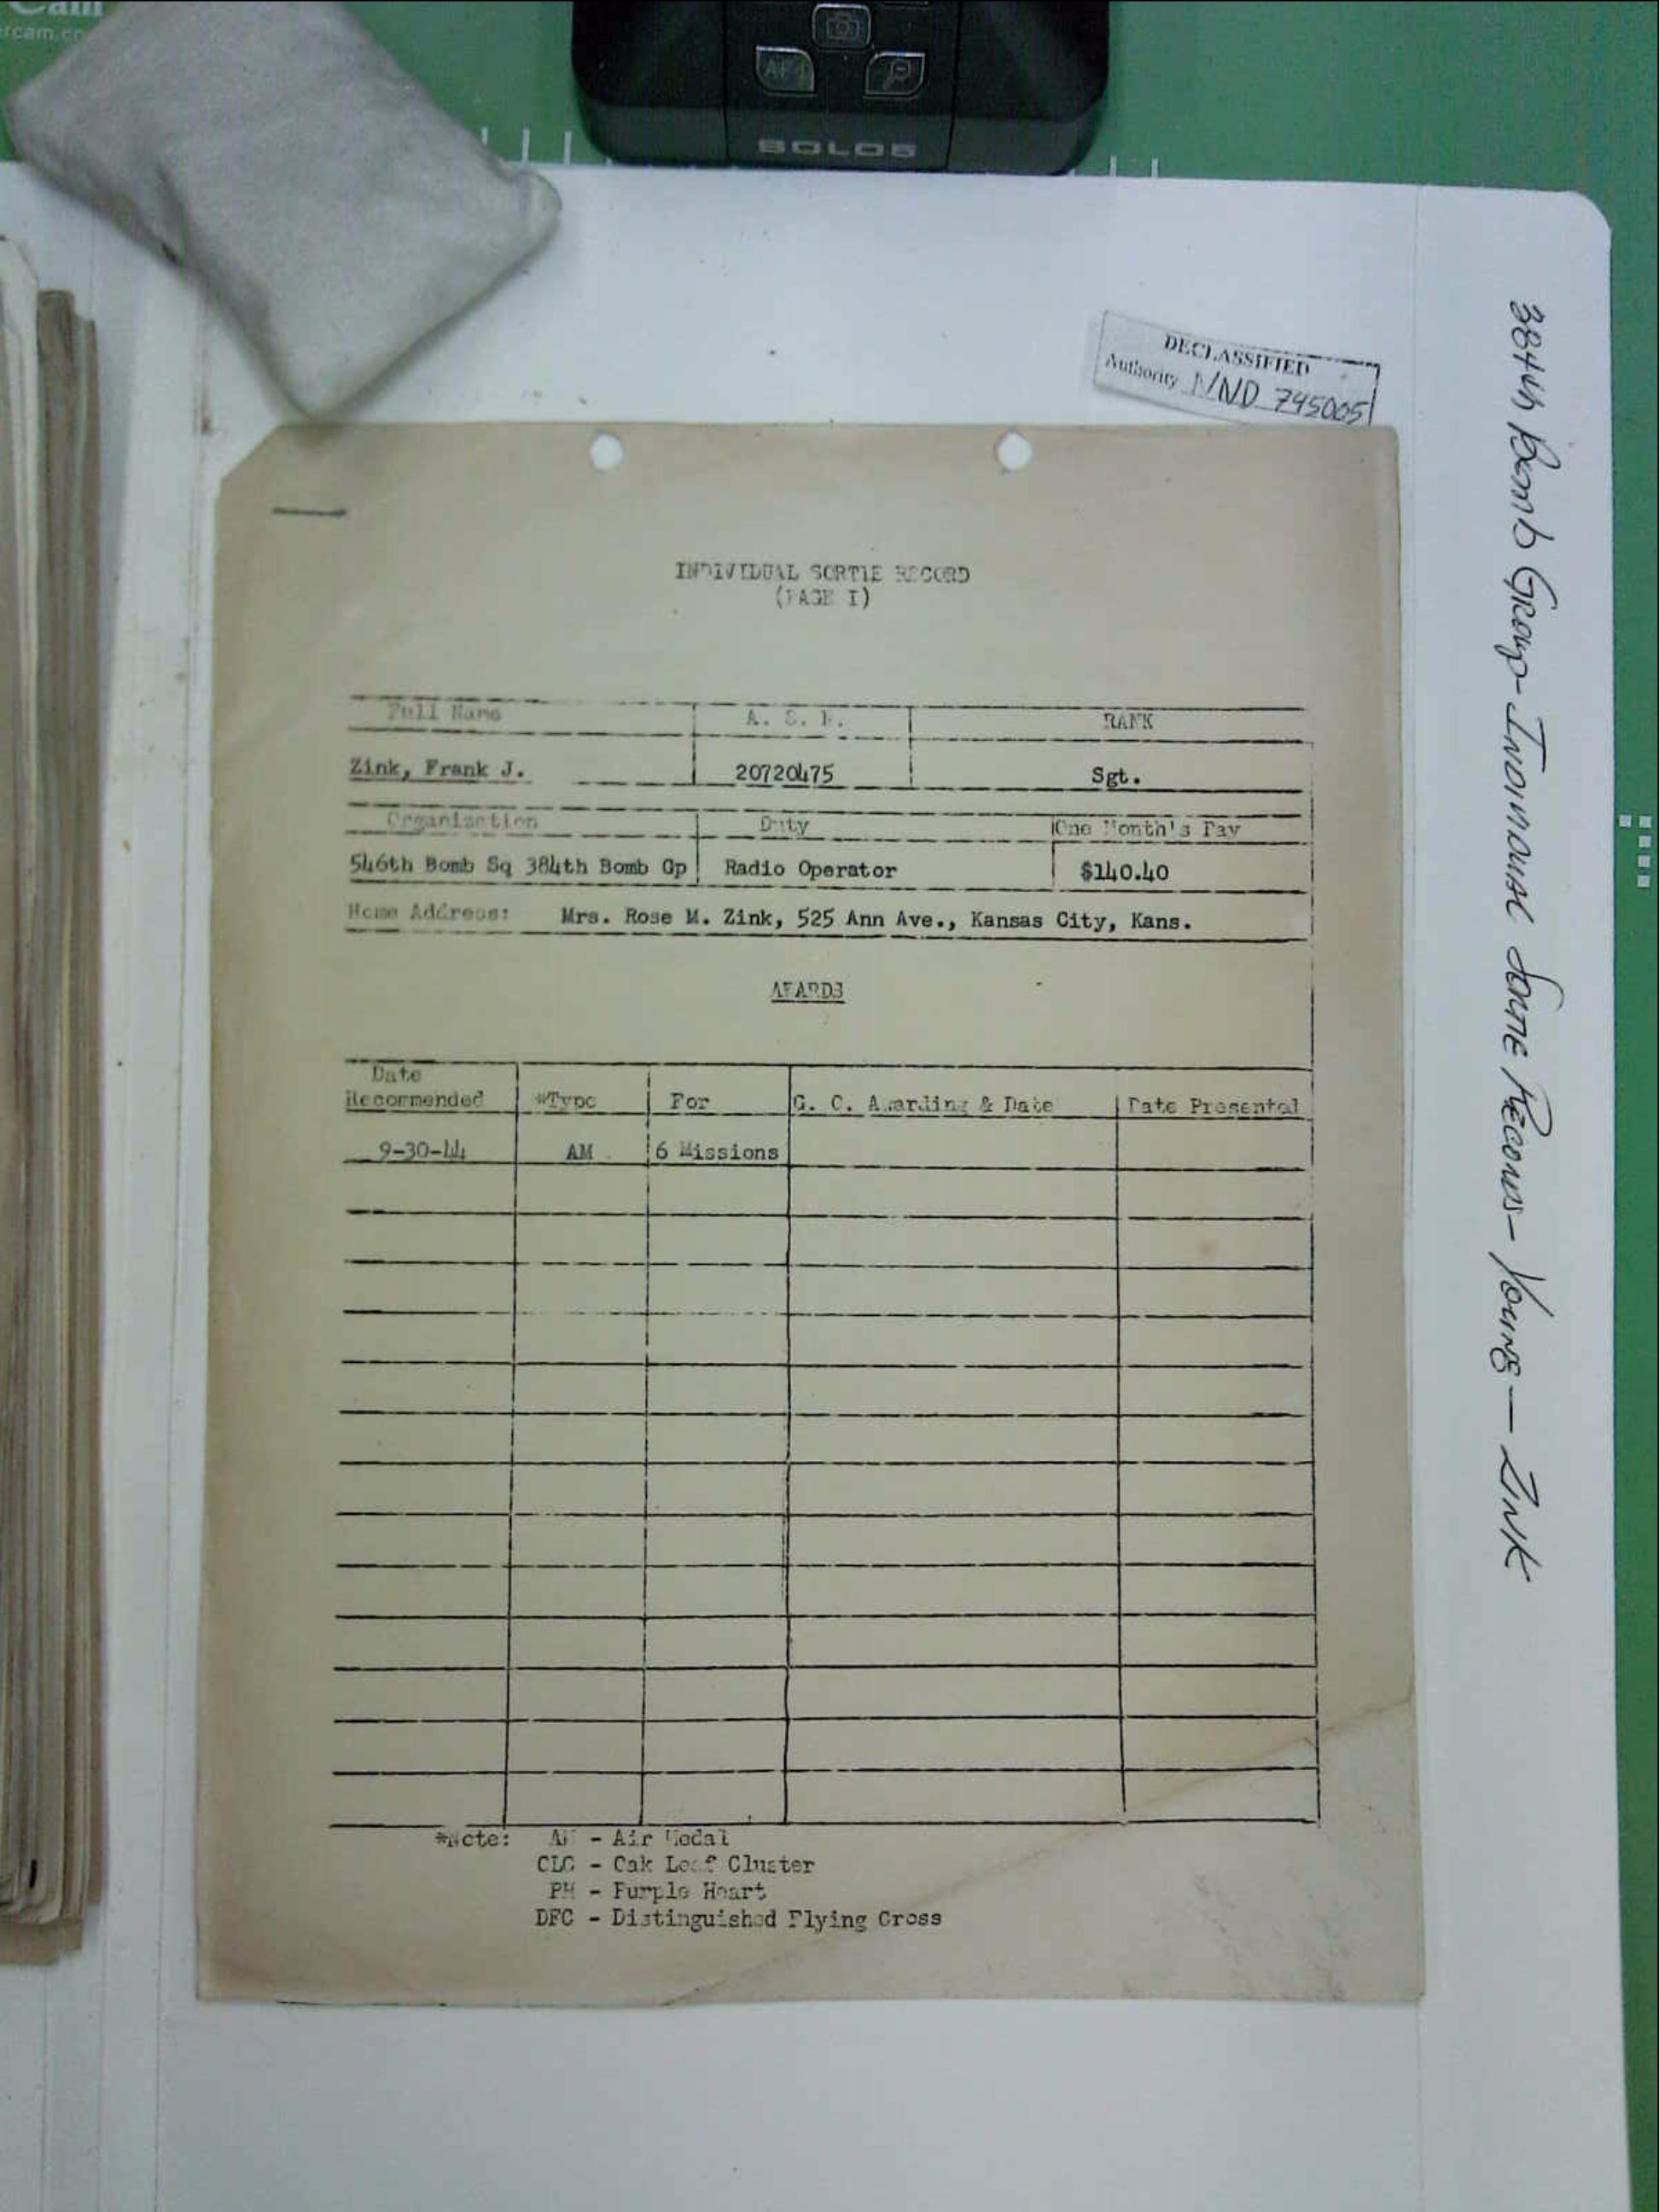 Cam
AF
SOLO5
DECLASSIFIED
Authority NND 745005
384th Bomb Group - Individual Sortie Records - Young — Zink
INDIVIDUAL SORTIE RECORD
(PAGE I)
Full Name A. S. N. RANK
Zink, Frank J. 20720475 Sgt.
Organization Duty One Month's Pay
546th Bomb Sq 384th Bomb Gp Radio Operator $140.40
Home Address: Mrs. Rose M. Zink, 525 Ann Ave., Kansas City, Kans.
AWARDS
Date
Recommended *Type For G. O. Awarding & Date Date Presented
9-30-44 AM 6 Missions
*Note: AM - Air Medal
CLC - Oak Leaf Cluster
PH - Purple Heart
DFC - Distinguished Flying Cross